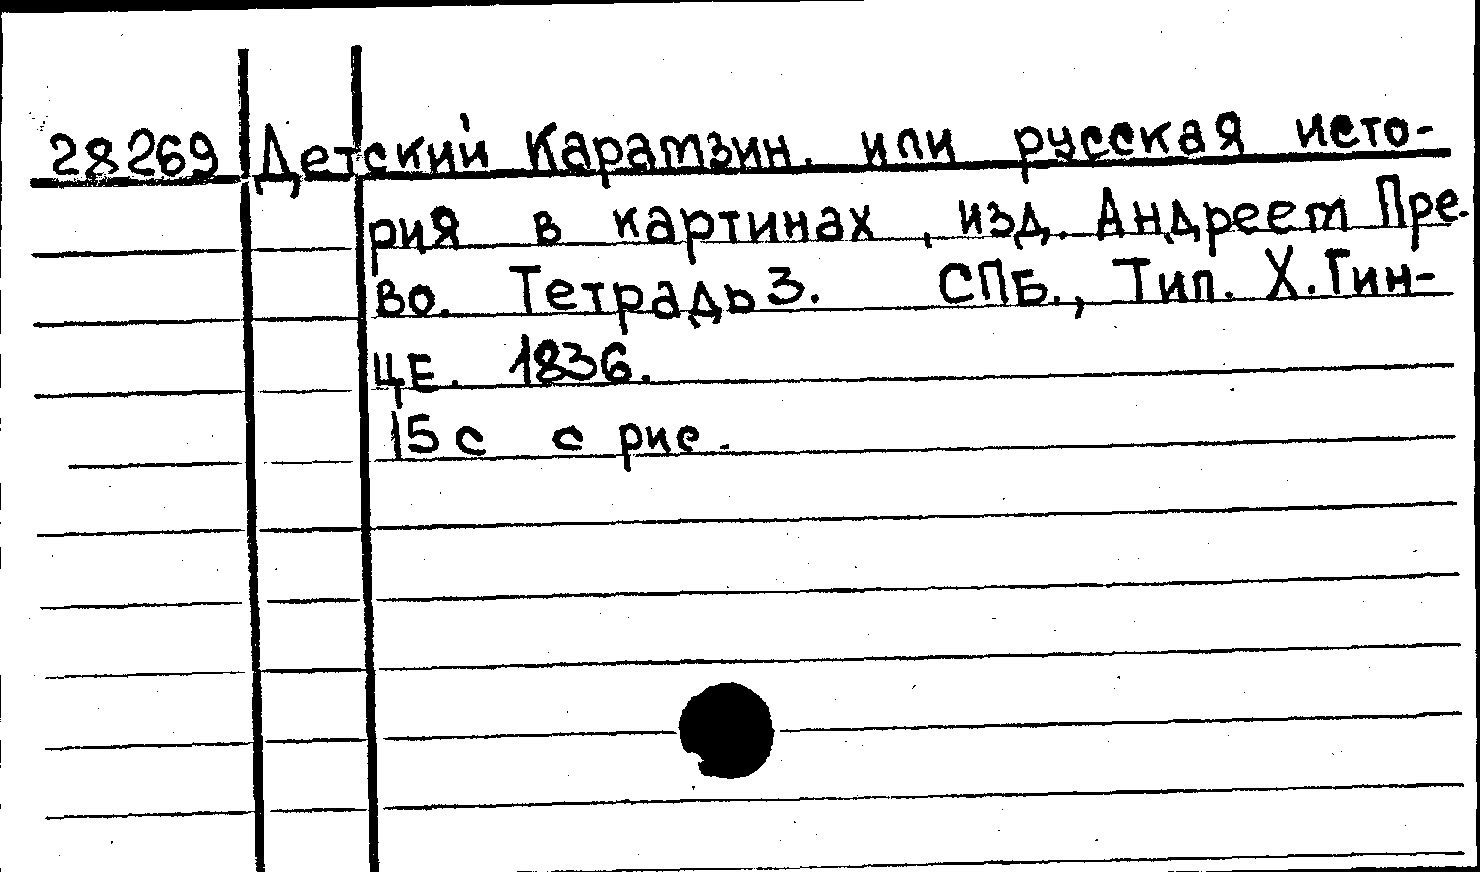 28269 Детский Карамзин. или русская исто-
рия в картинах, изд. Андреем Пре-
во. Тетрадь 3. СПБ., Тип. Х. Гин-
це. 1836.
15 с с рис.